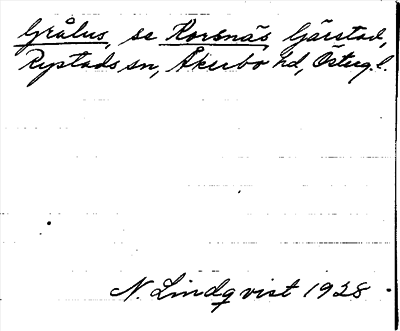 Grålus, se Korsnäs Gärstad,
Rystads sn, Åkerbo hd, Östergl.
N. Lindqvist 1928